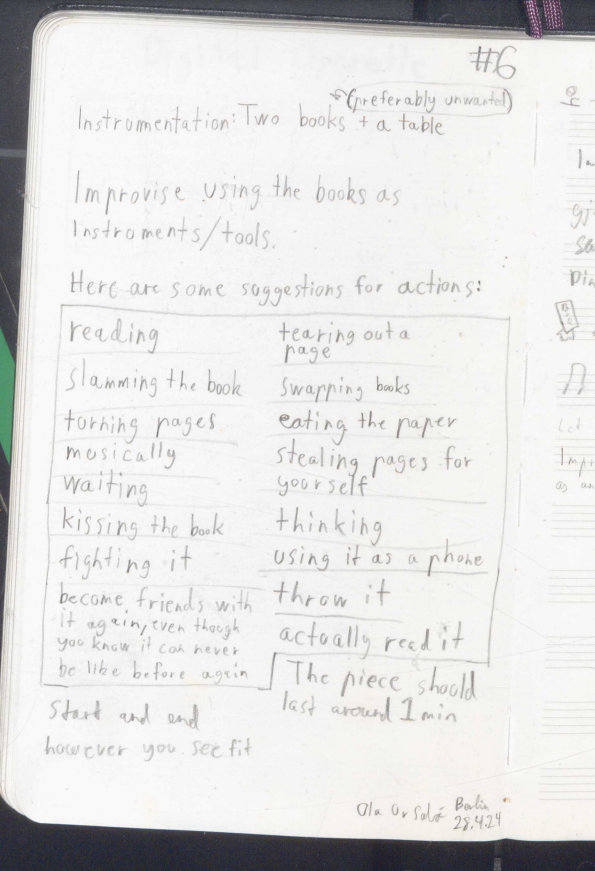 #6
(preferably unwanted)
Instrumentation: Two books + a table
Improvise using the books as
Instruments/tools.
Here are some suggestions for actions:
reading
slamming the book
turning pages
musically
waiting
kissing the book
fighting it
become friends with
it again, even though
you know it can never
be like before again
tearing out a
page
swapping books
eating the paper
stealing pages for
yourself
thinking
using it as a phone
throw it
actually read it
The piece should
last around 1 min
Start and end
however you see fit
Ola Berlin
28.4.24
Let